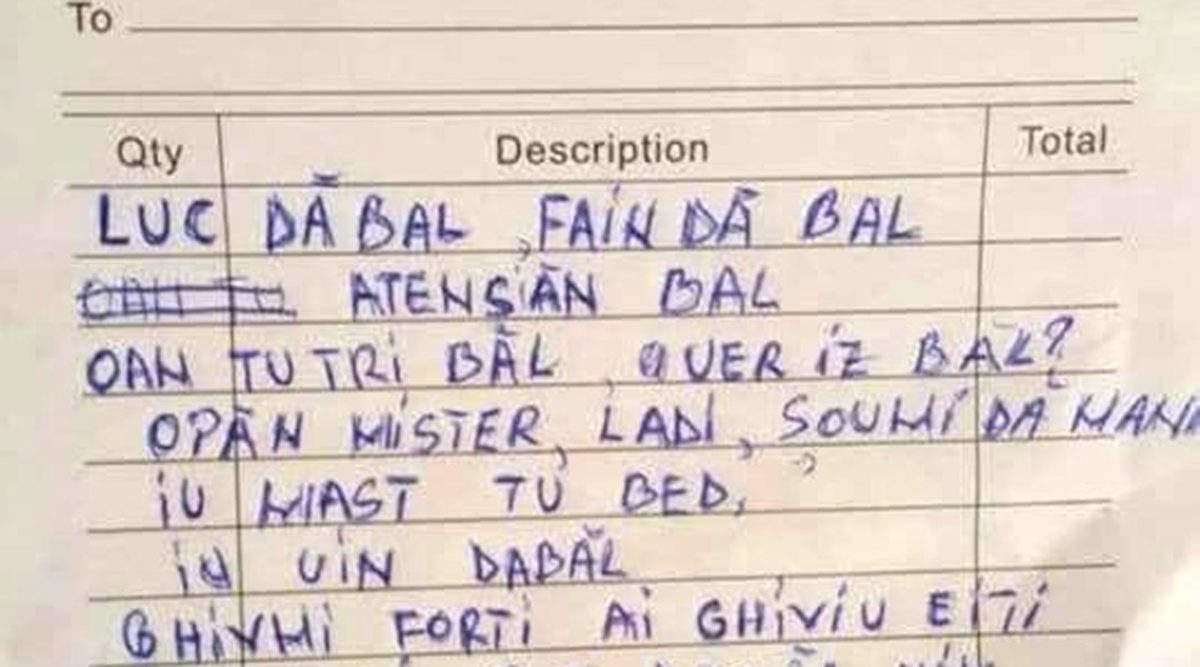 To
Qty Description Total
LUC DĂ BAL, FAIN DĂ BAL
ATENȘĂN BAL
OAN TU TRI BĂL, UER IZ BAL?
OPĂN MISTER, LADI, SOUMI DĂ MANI
IU MAST TU BED,
IU UIN DABĂL
GHIVMI FORTI AI GHIVIU EITI